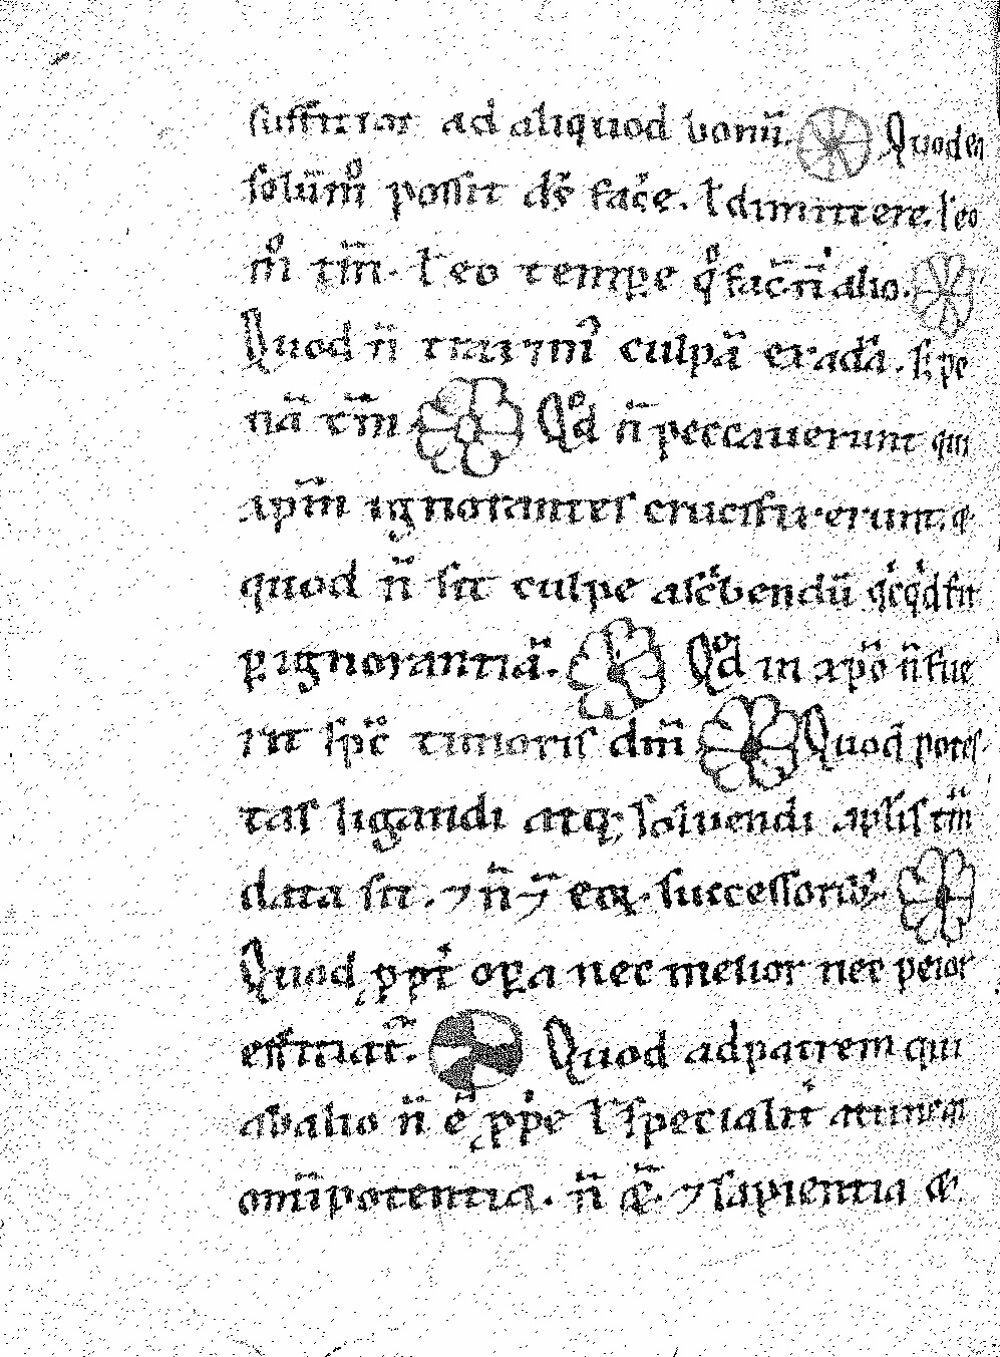 sufficiat ad aliquod bonū. Quod ea
solūmͦ possit dš facͤe. ł dimittere. ł eo
mͦ tm̄. ł eo tempꝛe qͦ fac̄ n̄ alio.
Quod n̄ traximꝰ culpā ex adā. s; pe
nā tm̄ Qͦd n̄ peccauerunt qui
xp̄m ignorantes crucifixerunt. &
quod n̄ sit culpe asc͛bendū qͥcqͥd fit
ꝑ ignorantiā. Qͦd in xp̄o n̄ fue
rit sp̄c timoris dn̄i Quod potes
tas ligandi atq; soluendi aplis tm̄
data sit. ⁊ n̄ ⁊ eoꝝ successorib;
Quod ꝓpt͛ oꝑa nec melior nec peior
efficiat᷑. Quod ad patrem qui
ab alio n̄ ē ꝓpͥe ł specialit͛ attineat
om̄ipotentia. n̄ &̄. ⁊ sapientia &